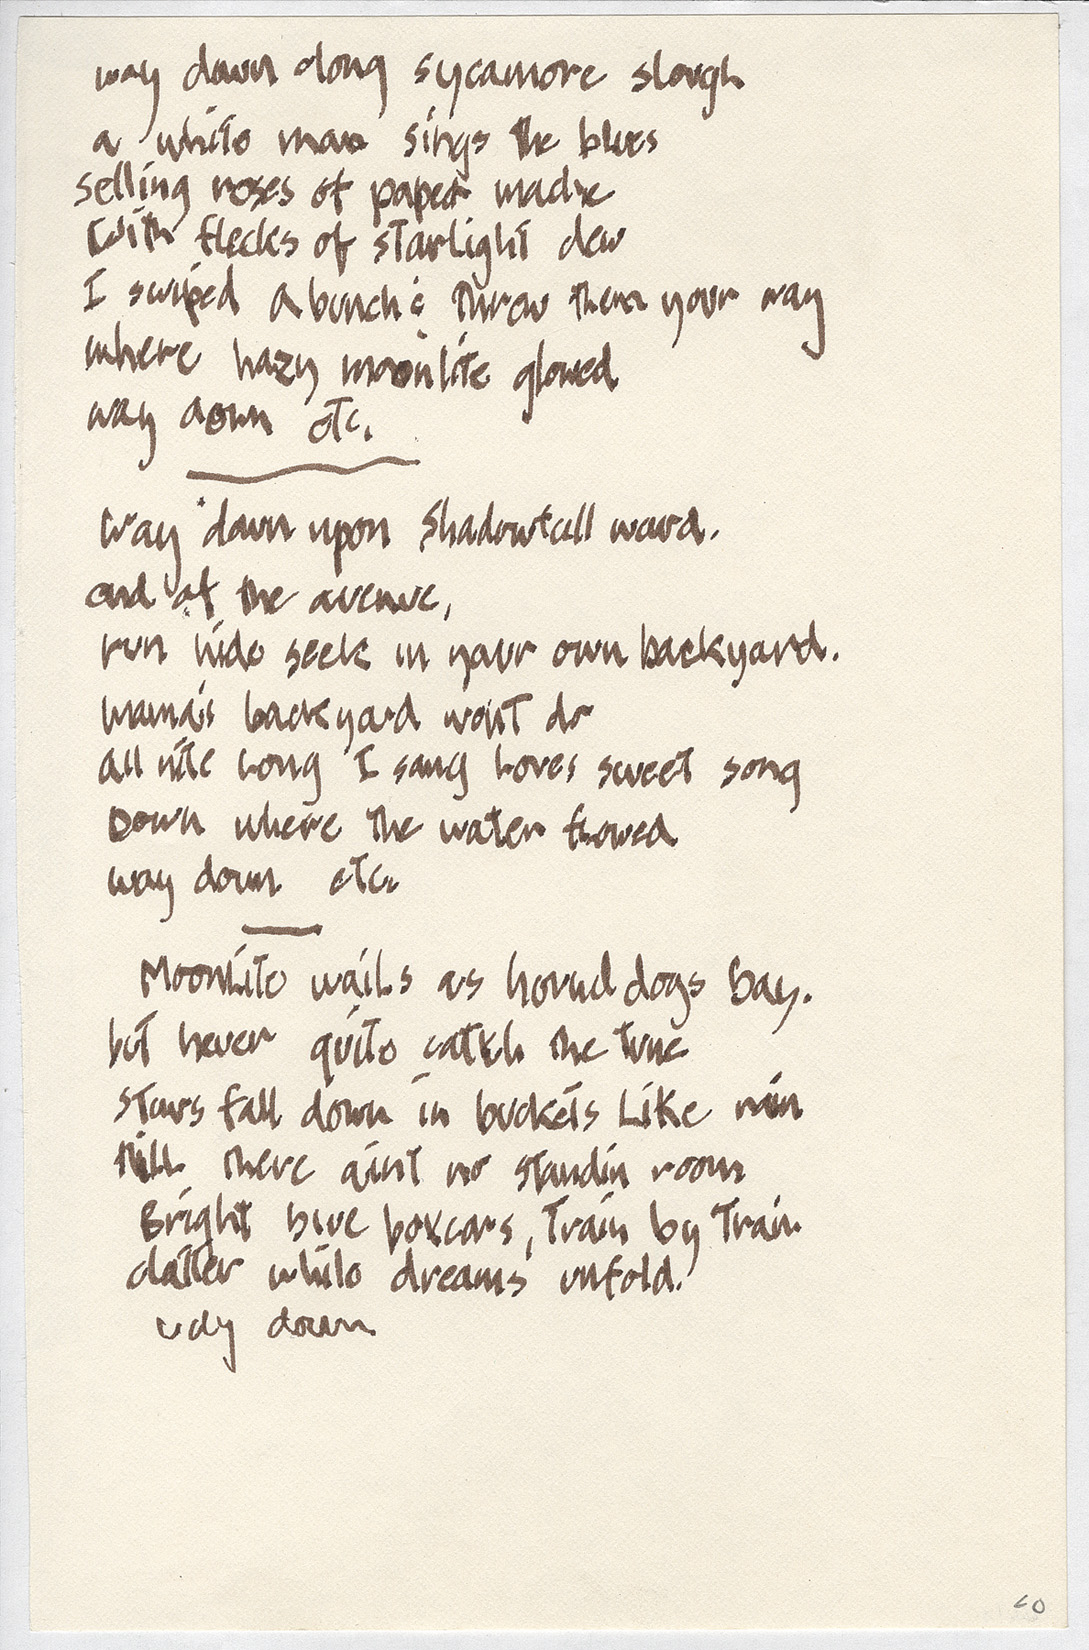 way down along sycamore slough
a white man sings the blues
selling roses of paper madre
With flecks of starlight dew
I swiped a bunch & threw them your way
where hazy moonlite glowed
way down etc.
Way down upon Shadowfall ward.
end of the avenue,
run hide seek in your own backyard.
mama's backyard wont do
all nite long I sang Loves sweet song
Down where the water flowed
way down etc.
MoonLite wails as hound dogs bay.
but never quite catch the tune
stars fall down in buckets Like rain
till there aint no standin room
Bright blue boxcars, train by train
clatter while dreams unfold.
way down